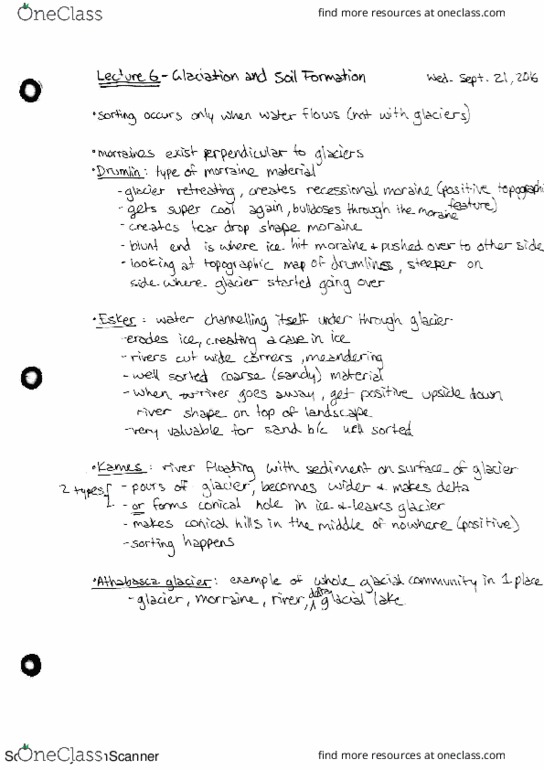 OneClass
find more resources at oneclass.com
Lecture 6 - Glaciation and Soil Formation
Wed. Sept. 21, 2016
• sorting occurs only when water flows (not with glaciers)
• morraines exist perpendicular to glaciers
• Drumlin: type of morraine material
- glacier retreating, creates recessional moraine (positive topographi
feature)
- gets super cool again, bulldoses through the moraine
- creates tear drop shape moraine
- blunt end is where ice hit moraine + pushed over to other side
- looking at topographic map of drumlins, steeper on
side where glacier started going over
• Esker: water channelling itself under through glacier
- erodes ice, creating a cave in ice
- rivers cut wide corners, meandering
- well sorted coarse (sandy) material
- when river goes away, get positive upside down
river shape on top of landscape
- very valuable for sand b/c well sorted
• Kames: river floating with sediment on surface of glacier
2 types
- pours of glacier, becomes wider + makes delta
- or forms conical hole in ice + leaves glacier
- makes conical hills in the middle of nowhere (positive)
- sorting happens
• Athabasca glacier: example of whole glacial community in 1 place
- glacier, morraine, river, delta, glacial lake
Sc OneClass nScanner
find more resources at oneclass.com